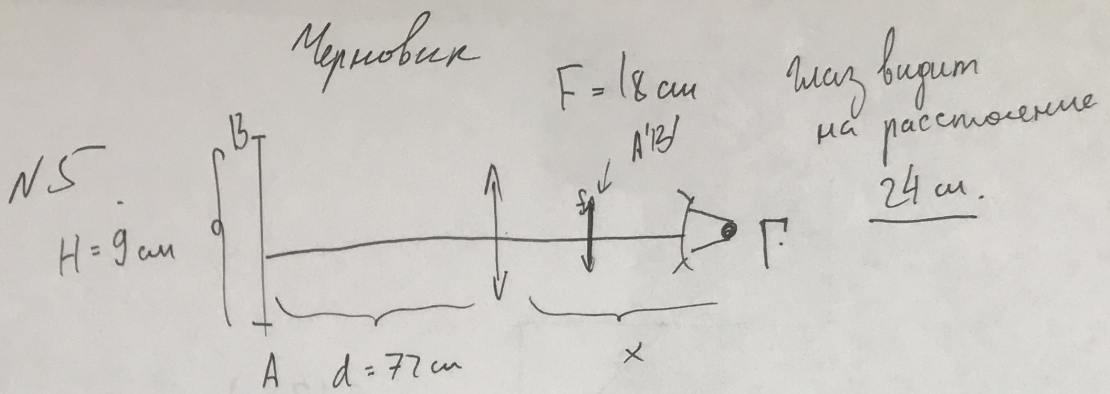 Черновик
F = 18 см
глаз видит
на расстоение
24 см.
A'B'
N5.
H = 9 см
B
Г
A
d = 72 см
x